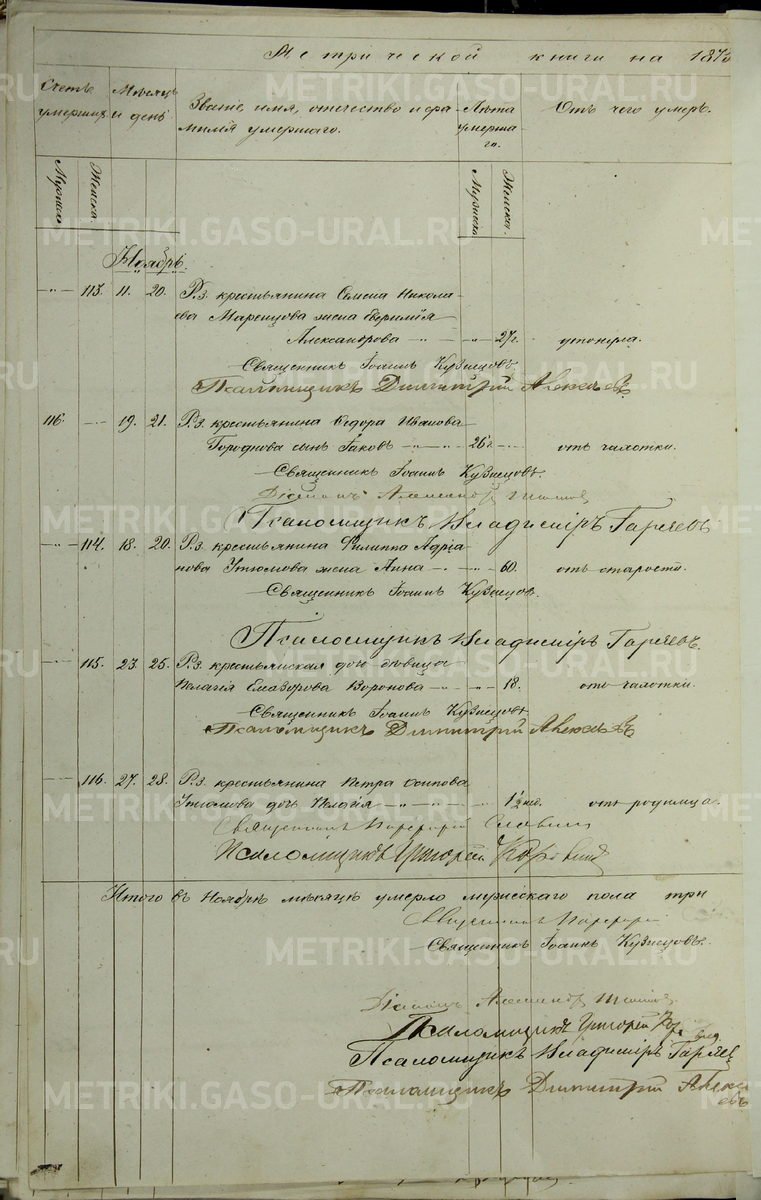 Метрической книги на 187
Счетъ умершихъ
Мѣсяцъ и день
Званіе, имя, отечество и фа-
милія умершаго.
Лѣта умерша-
го.
Отъ чего умеръ.
Мужска.
Женска.
Мужска.
Женска.
Ноябрь.
113. 11. 20. Р.з. крестьянина Семена Никола-
ева Маренцова жена Евѳимія
Александрова 27 г. утонула.
Священникъ Іоаннъ Кузнецовъ.
Псаломщикъ Димитрій Алексѣевъ
116. 19. 21. Р.з. крестьянина Ѳедора Иванова
Городнова сынъ Іаковъ 26 г. отъ чахотки.
Священникъ Іоаннъ Кузнецовъ.
Діаконъ Александръ
Псаломщикъ Владиміръ Гаряевъ
114. 18. 20. Р.з. крестьянина Филиппа Адрiа-
нова Утюмова жена Анна 60. отъ старости.
Священникъ Іоаннъ Кузнецов.
Псаломщикъ Владиміръ Гаряевъ.
115. 23. 25. Р.з. крестьянская дочь дѣвица
Пелагія Елеазорова Воронова 18. отъ чахотки.
Священникъ Іоаннъ Кузнецовъ
Псаломщикъ Димитрій Алексѣевъ
116. 27. 28. Р.з. крестьянина Петра Осипова
Утюмова дочь Пелагія 1½ нед. отъ родимца.
Священникъ Порфирій Славнинъ
Псаломщикъ Григорій
Итого въ Ноябрѣ мѣсяцѣ умерло мужескаго пола три
Священникъ Порфирій
Священникъ Іоаннъ Кузнецовъ.
Діаконъ Александръ
Псаломщикъ Григорій
Псаломщикъ Владиміръ Гаряев
Псаломщикъ Димитрій Алексѣ-
евъ
METRIKI.GASO-URAL.RU